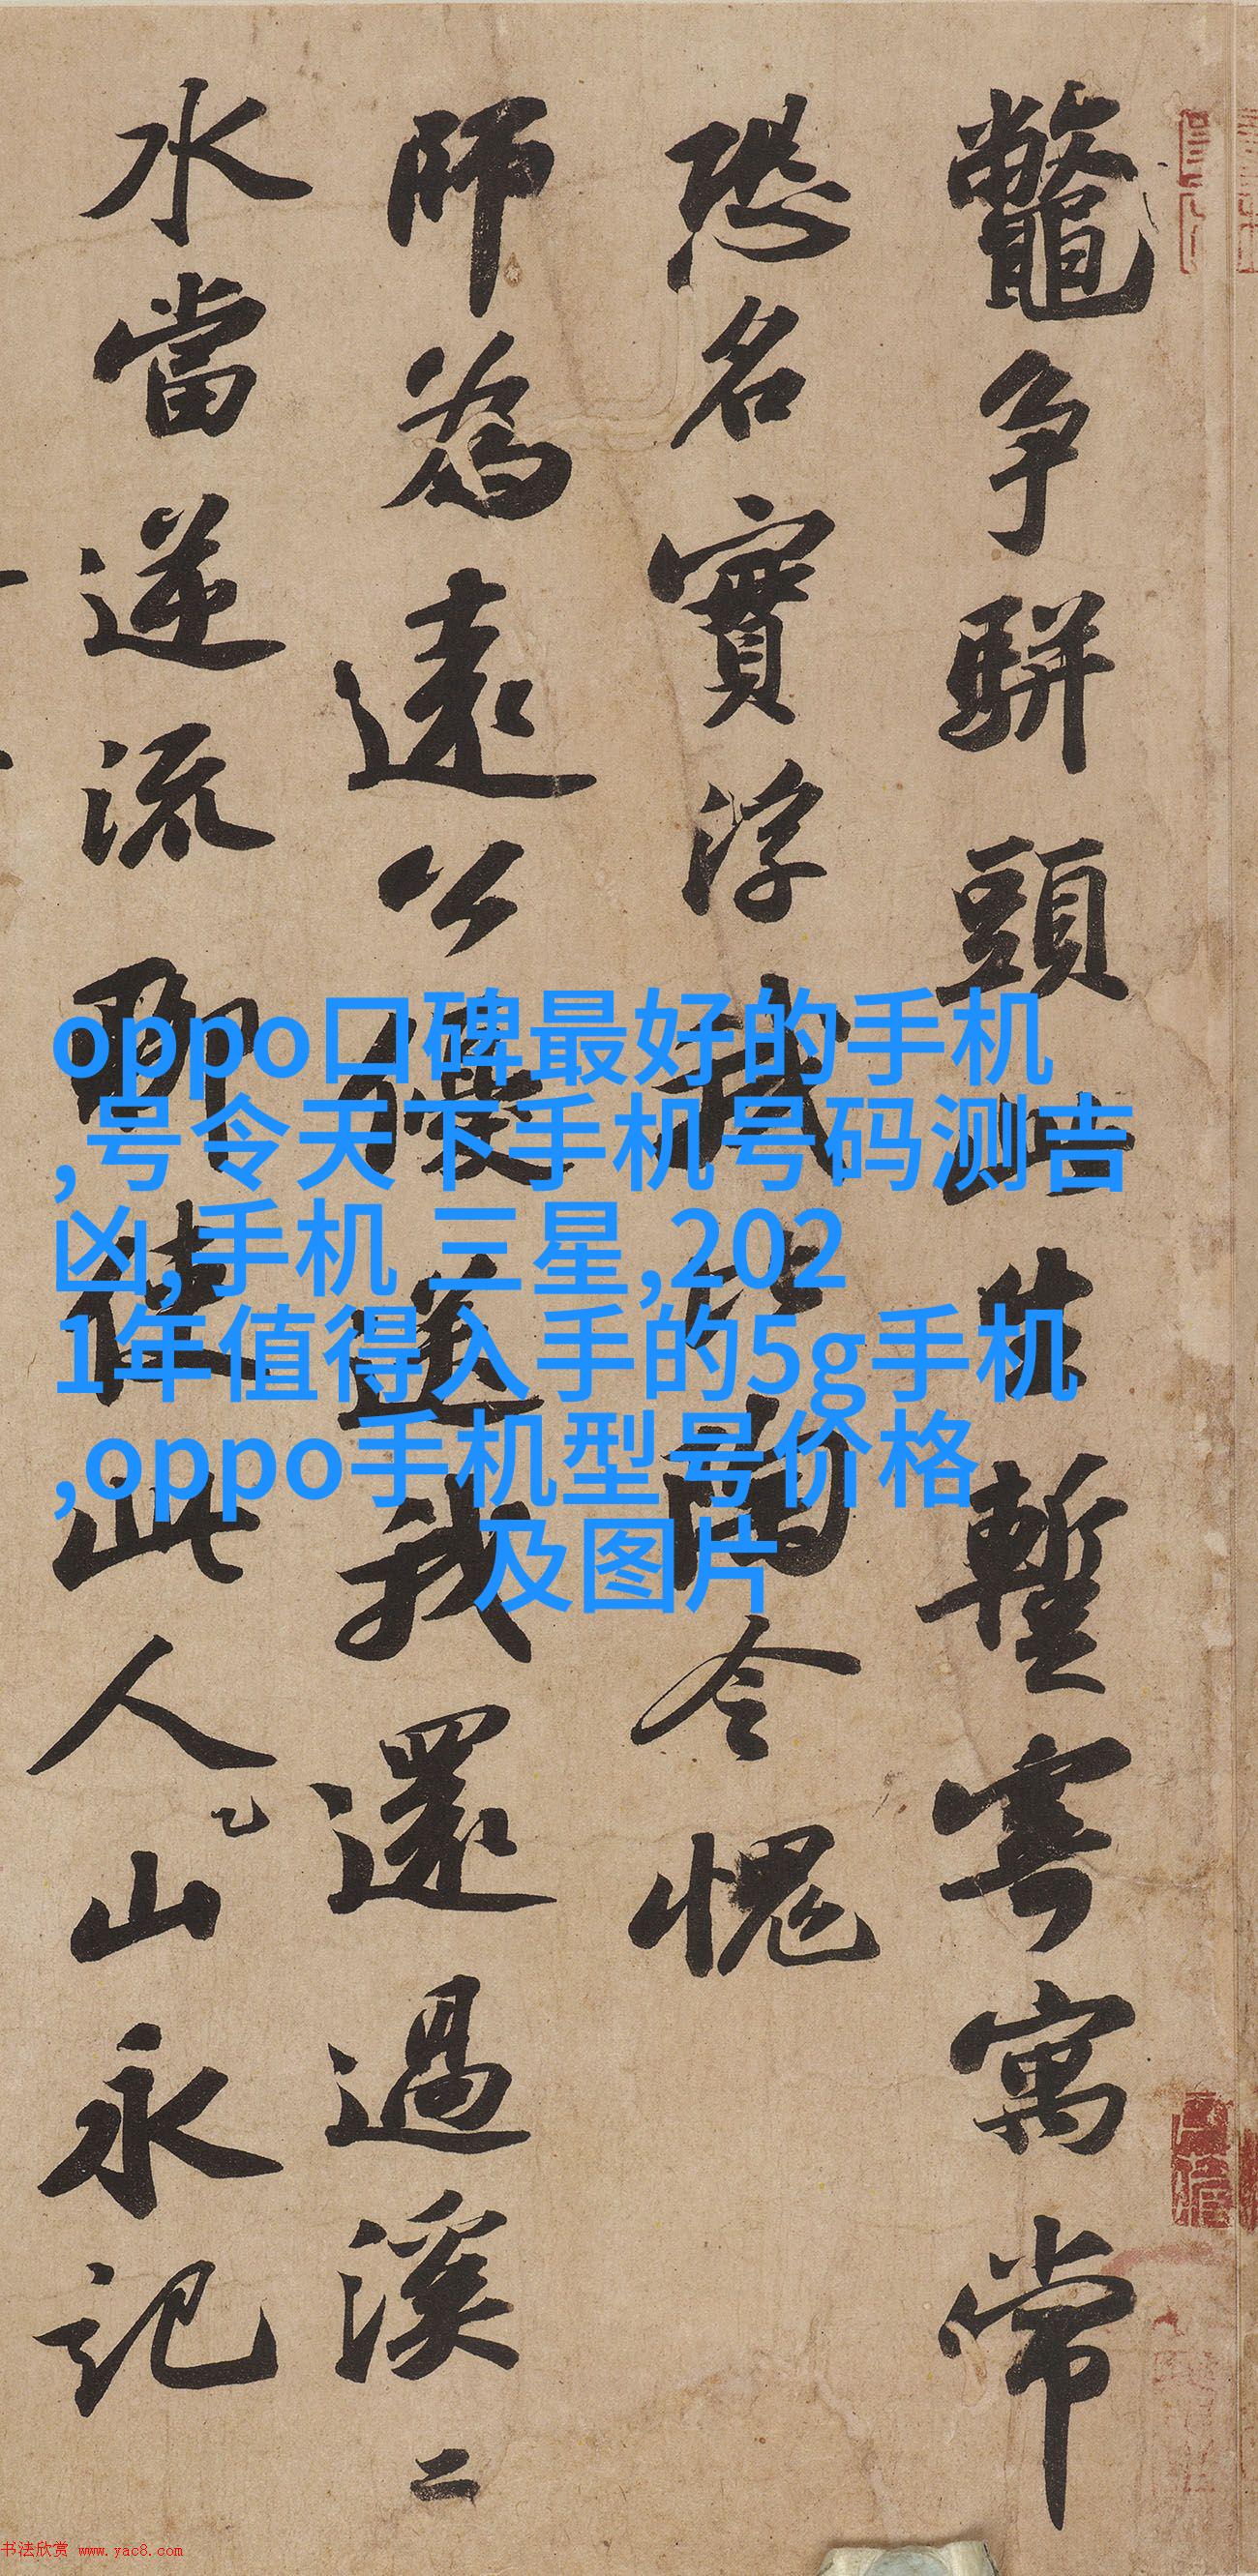 鼇争駢頭此生暫寄寓常
恐名實浮我比陶令愧
師為遠公優送我還過溪二
水當逆流聊使此人山永記
oppo口碑最好的手机
,号令天下手机号码测吉
凶,手机 三星,202
1年值得入手的5g手机
,oppo手机型号价格
及图片
书法欣赏 www.yac8.com